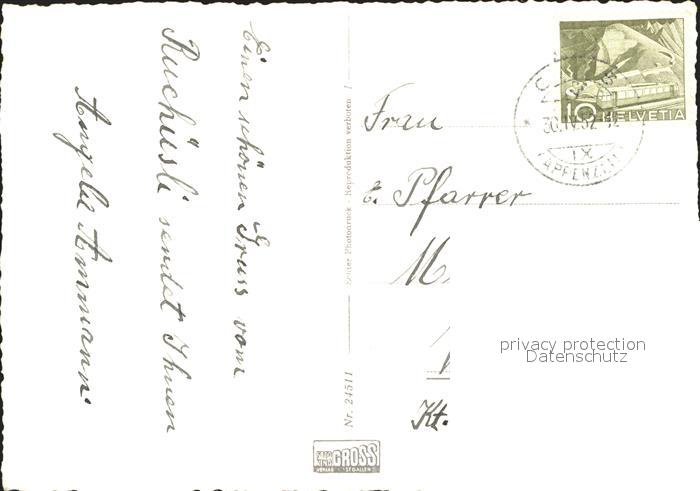 Einen schönen Gruss vom
Ruchüsli sendet Ihnen
Angelie Ammann.
Echter Photodruck - Reproduktion verboten
Nr. 24511
Frau
E. Pfarrer
M.
Kt.
10 HELVETIA
30.IV.52-12
IX
(APPENZELL)
privacy protection
Datenschutz
GROSS
VERLAG ST GALLEN